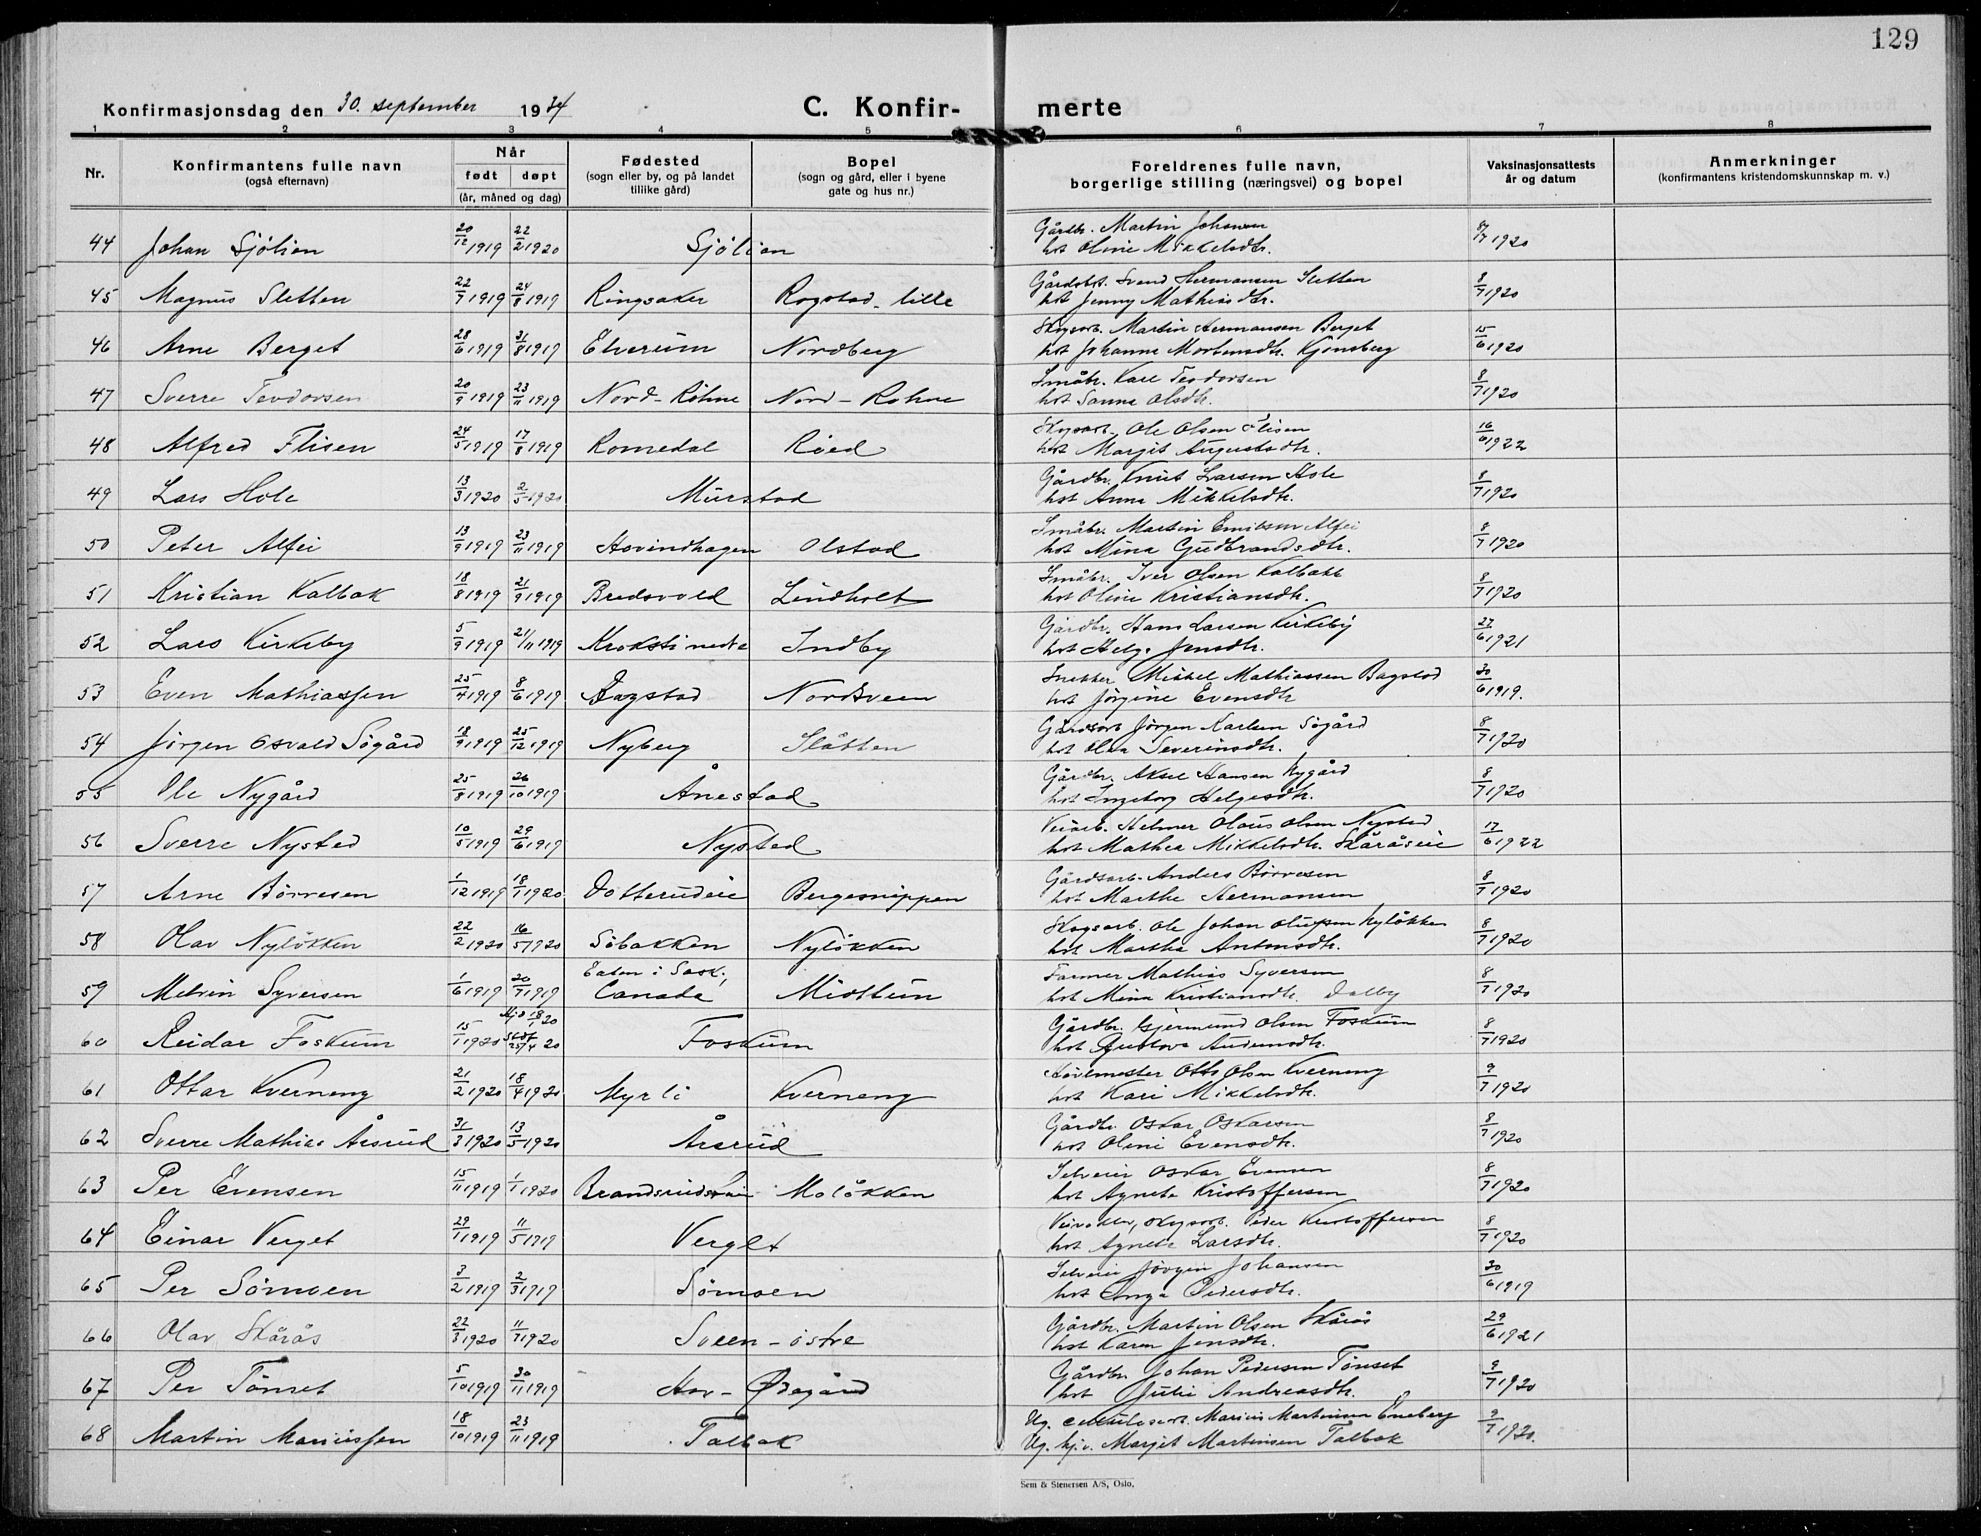 129
Konfirmasjonsdag den 30. september 1934
C. Konfir- merte
1 2 3 4 5 6 7 8
Nr.
Konfirmantens fulle navn
(også efternavn)
Når
født døpt
(år, måned og dag)
Fødested
(sogn eller by, og på landet
tillike gård)
Bopel
(sogn og gård, eller i byene
gate og hus nr.)
Foreldrenes fulle navn,
borgerlige stilling (næringsvei) og bopel
Vaksinasjonsattests
år og datum
Anmerkninger
(konfirmantens kristendomskunnskap m. v.)
44 Johan Sjölien 20/12 1919 22/2 1920 Sjölien
Gårdbr. Martin Johansen
hst Oline Mikkelsdtr. 8/7 1920
45 Magnus Sletten 22/7 1919 24/8 1919 Ringsaker Rogstad lille
Gårdsbst. Svend Hermansen Sletten
hst Jenny Mathiasdtr. 8/7 1920
46 Arne Berget 28/6 1919 31/8 1919 Elverum Nordberg
Skogsarb. Martin Hermansen Berget
hst Johanne Mortensdtr. Kjönsberg 15/6 1920
47 Sverre Teodorsen 20/9 1919 23/11 1919 Nord-Röhne Nord-Rohne
Småbr. Karl Teodorsen
hst Sanna Olsdtr. 8/7 1920
48 Alfred Flisen 24/5 1919 17/8 1919 Romedal Röed
Skogsarb. Ole Olsen Flisen
hst Margit Augustsdtr. 16/6 1922
49 Lars Hole 13/3 1920 2/5 1920 Murstad
Gårdbr. Knut Larsen Hole
hst Anna Mikkelsdtr. 8/7 1920
50 Peter Alfei 13/9 1919 23/11 1919 Hovindhagen Olstad
Småbr. Martin Emilsen Alfei
hst Mina Gudbrandsdtr. 8/7 1920
51 Kristian Kalbak 18/8 1919 21/9 1919 Bredsvold Lindholt
Småbr. Iver Olsen Kalbakk
hst Oline Kristiansdtr. 8/7 1920
52 Lars Kirkeby 5/9 1919 2/11 1919 Kroksti nedre Indby
Gårdbr. Hans Larsen Kirkeby
hst Helga Jensdtr. 27/6 1921
53 Even Mathiassen 25/4 1919 8/6 1919 Bagstad Nordsveen
Snekker Mikkel Mathiassen Bagstad
hst Jörgine Evensdtr 30/6 1919.
54 Jörgen Osvald Sögård 18/9 1919 25/12 1919 Nyberg Slåtten
Gårdsarb Jörgen Karlsen Sögård
hst Olea Severinsdtr. 8/7 1920
55 Ole Nygård 25/8 1919 26/10 1919 Ånestad
Gårdbr. Aksel Hansen Nygård
hst Ingeborg Helgesdtr. 8/7 1920
56 Sverre Nysted 10/5 1919 29/6 1919 Nysted
Veiarb. Helmer Olaus Olsen Nysted
hst Mathea Mikkelsdtr. Skåråseie 17/6 1922
57 Arne Börresen 1/12 1919 18/1 1920 Dotterudeie Bergesnippen
Gårdsarb. Anders Börresen
hst Marthe Hermansen 8/7 1920
58 Olav Nylökken 22/2 1920 16/5 1920 Söbakken Nylökken
Skogsarb. Ole Johan Olufsen Nylökken
hst Martha Antonsdtr. 8/7 1920
59 Melvin Syversen 1/6 1919 20/7 1919 Eaton i Sask., Canada Midttun
Farmer Mathias Syversen
hst Mina Kristiansdtr. Dalby 8/7 1920
60 Reidar Foskum 15/1 1920 Hjd 18/1 20 Stdf 25/4 20 Foskum
Gårdbr. Gjermund Olsen Foskum
hst Gustava Andersdtr. 8/7 1920
61 Ottar Kverneng 21/2 1920 18/4 1920 Myrli Kverneng
Hövlmester Otto Olsen Kverneng
hst Kari Mikkelsdtr. 9/7 1920
62 Sverre Mathias Åsrud 31/3 1920 13/5 1920 Åsrud
Gårdbr. Oskar Oskarsen
hst Oline Evensdtr. 8/7 1920
63 Per Evensen 15/11 1919 1/1 1920 Brandsrudseie Molökken
Selveier Oskar Evensen
hst Agneta Kristoffersen 8/7 1920
64 Einar Verget 29/1 1919 11/5 1919 Verget
skogsarb. Peder Kristoffersen
hst Agnete Larsdtr. 8/7 1920
65 Per Sömoen 3/2 1919 2/3 1919 Sömoen
Selveier Jörgen Johansen
hst Inga Pedersdtr. 30/6 1919
66 Olav Skårås 22/3 1920 11/7 1920 Sveen-östre
Gårdbr. Martin Olsen Skårås
hst Karen Jensdtr. 29/6 1921
67 Per Tönset 5/10 1919 30/11 1919 Hov-Ödegård
Gårdbr. Johan Pedersen Tönset
hst Julie Andreasdtr. 9/7 1920
68 Martin Mariussen 18/10 1919 23/11 1919 Talbak
Ug. cellulosearb. Marius Martinsen Eneberg
Ug. tj.v. Margit Martinsen Talbak 9/7 1920.
Sem & Stenersen A/S, Oslo.